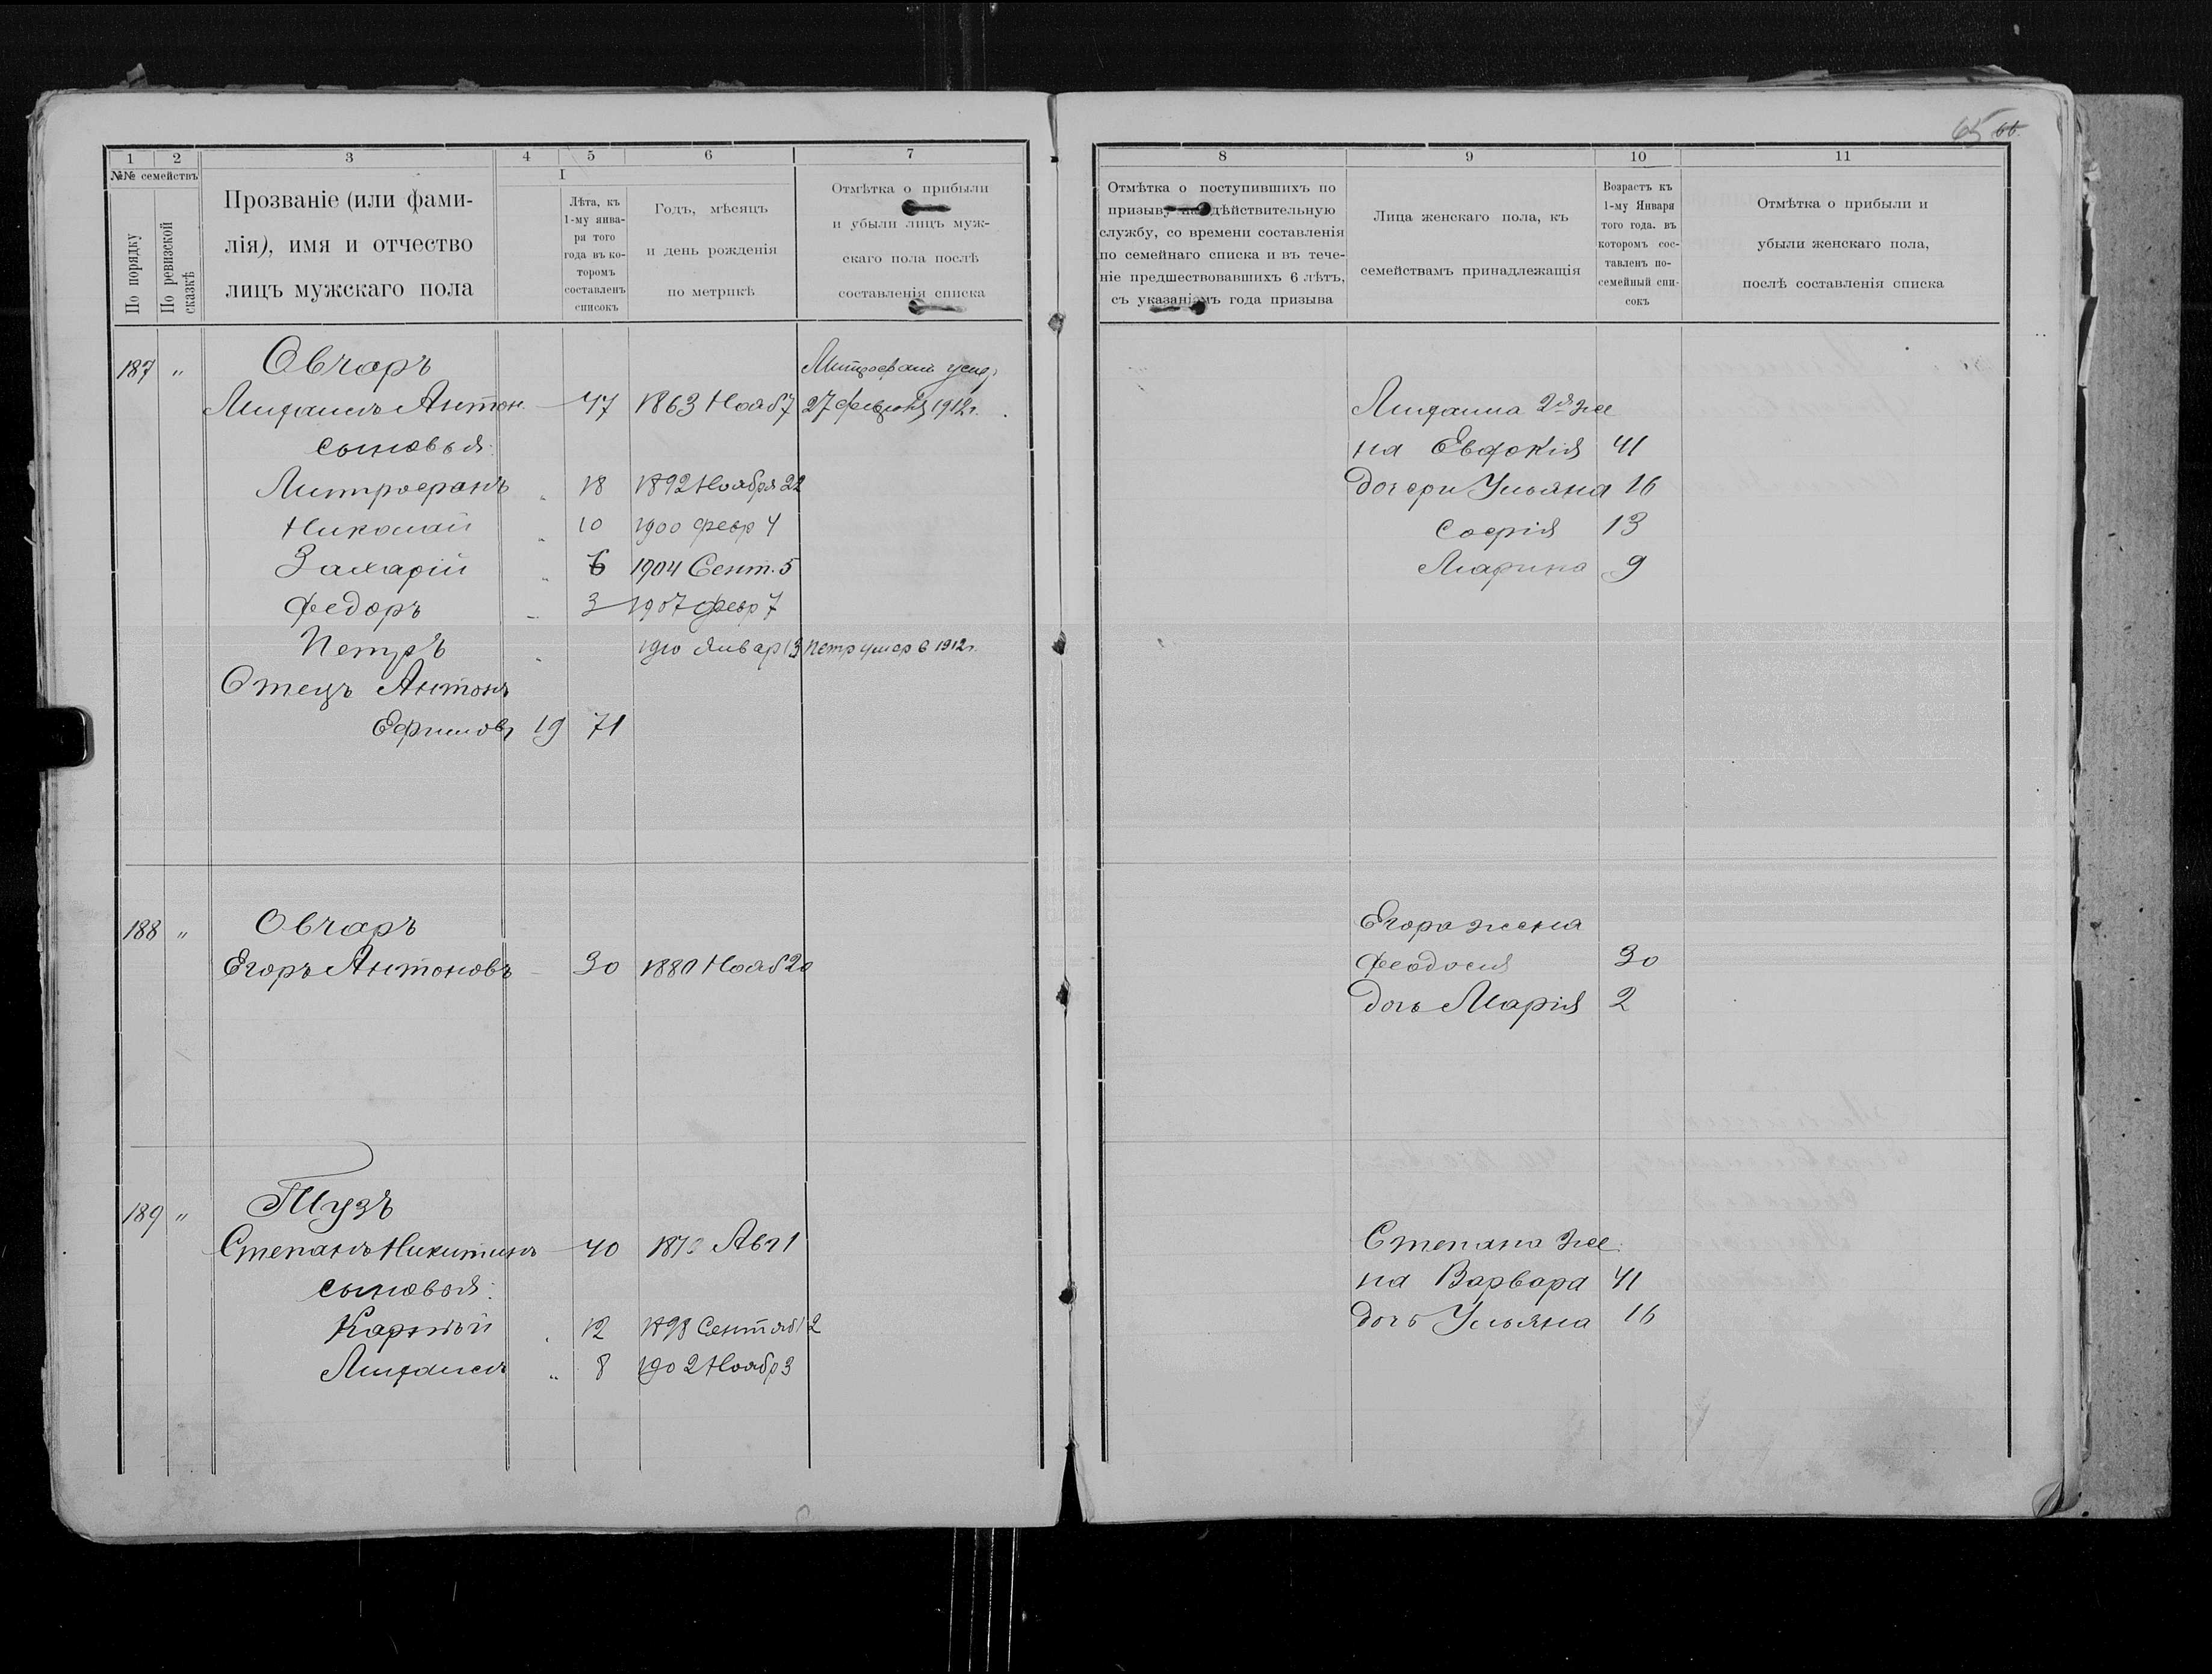 65 66.
1 2 3 4 5 6 7
№№ семействъ
По порядку
По ревизской сказкѣ
Прозваніе (или фами-
лія), имя и отчество
лицъ мужскаго пола
I
Лѣта, къ
1-му янва-
ря того
года въ ко-
торомъ
составленъ
списокъ
Годъ, мѣсяцъ
и день рожденія
по метрикѣ
Отмѣтка о прибыли
и убыли лицъ муж-
скаго пола послѣ
составленія списка
187 " Овчаръ Митрофанъ
Михаилъ Антон. 47 1863 Нояб 7 27 1912г.
сыновья:
Митрофанъ " 18 1892 Ноября 22
Николай " 10 1900 февр 4
Захарій " 6 1904 Сент. 5
Федоръ " 3 1907 февр 7
Петръ " 1910 Январ 13 Петр умер в 1912г.
Отецъ Антонъ
Ефимовъ 19 71
188 " Овчаръ
Егоръ Антоновъ 30 1880 Нояб 20
189 " Тузъ
Степанъ Никитинъ 40 1870 Авг 1
сыновья:
12 1898 Сентяб 12
Михаилъ " 8 1902 Ноябр 3
8 9 10 11
Отмѣтка о поступившихъ по
призыву на дѣйствительную
службу, со времени составленія
по семейнаго списка и въ тече-
ніе предшествовавшихъ 6 лѣтъ,
съ указаніемъ года призыва
Лица женскаго пола, къ
семействамъ принадлежащія
Возрастъ къ
1-му Января
того года. въ
которомъ сос-
тавленъ по-
семейный спи-
сокъ
Отмѣтка о прибыли и
убыли женскаго пола,
послѣ составленія списка
Михаила 2я же
на Евдокія 41
дочери Ульяна 16
Софія 13
Марина 9
Егора жена
Феодосия 30
дочь Марія 2
Степана же
на Варвара 41
дочь Ульяна 16